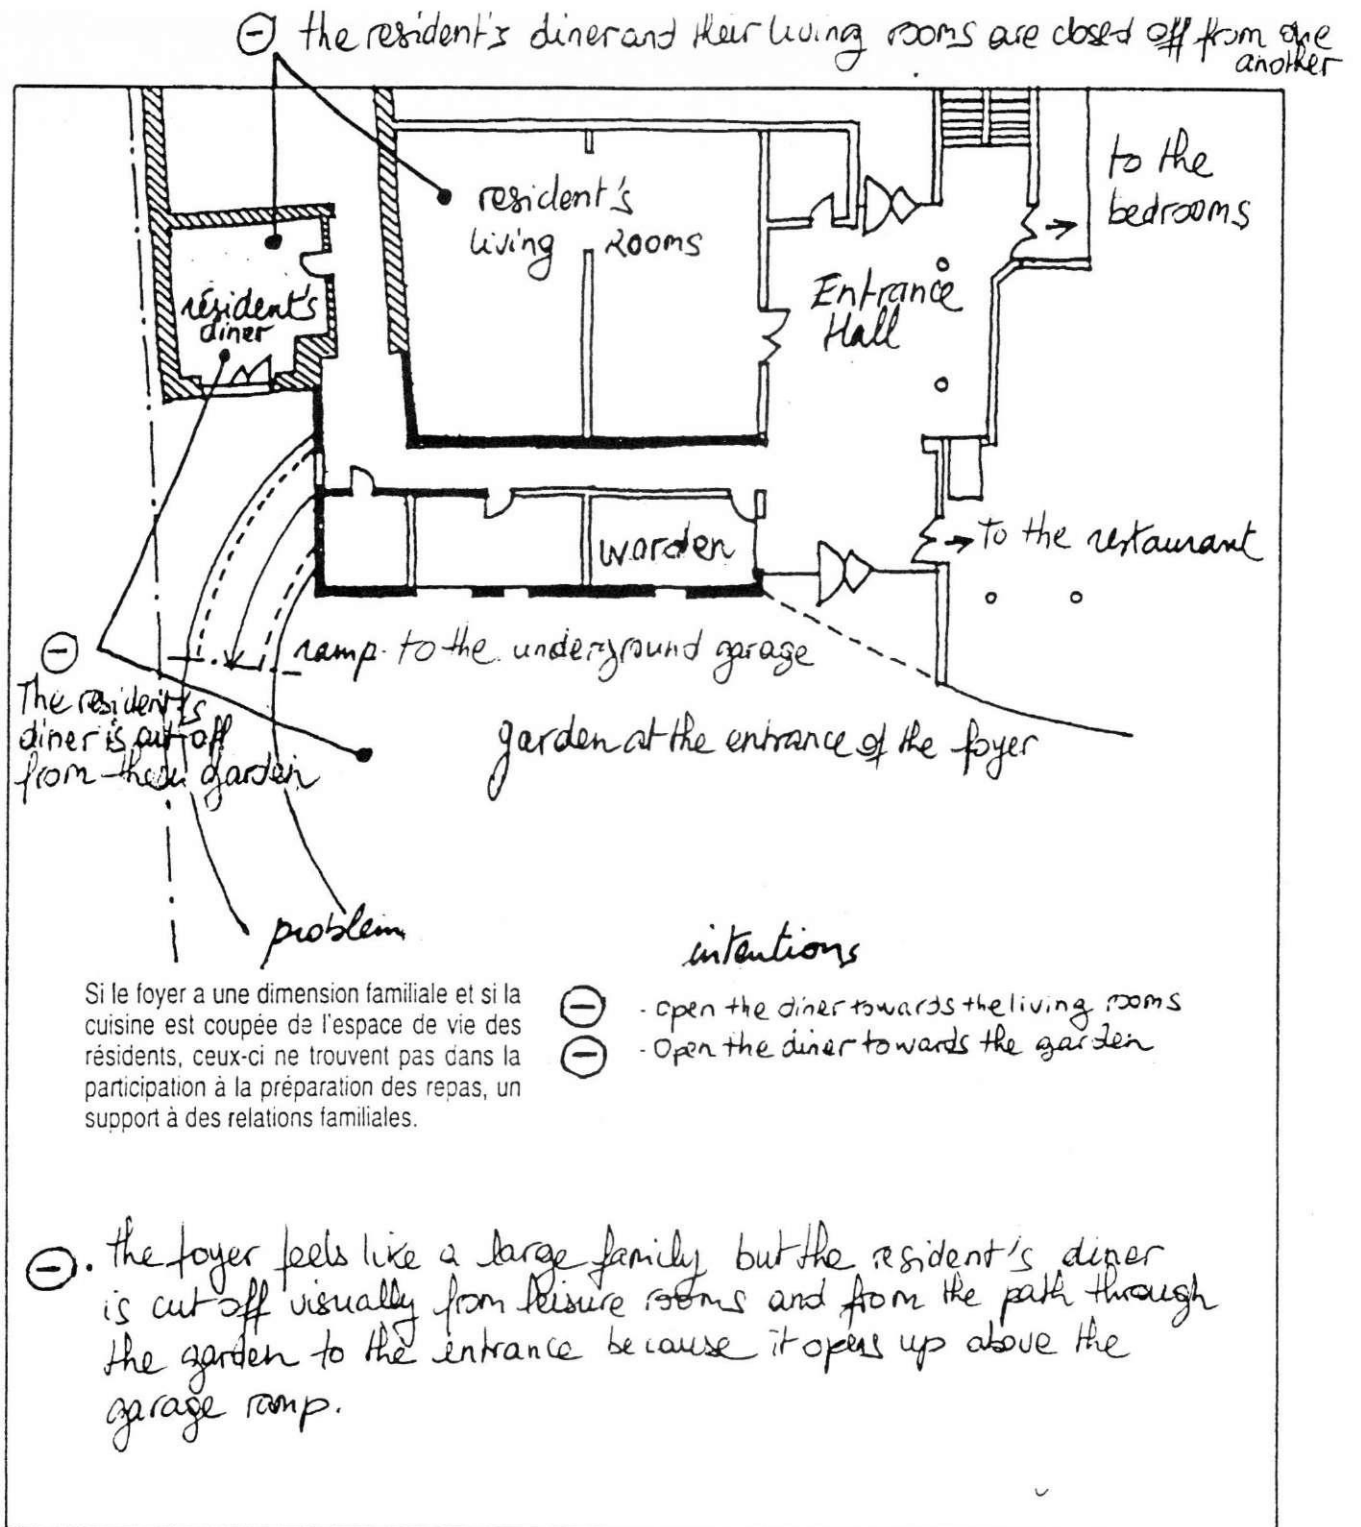 ⊖ the resident's diner and their living rooms are closed off from one
another
to the
bedrooms
resident's
living Rooms
résident's
diner
Entrance
Hall
warden
→ To the restaurant
⊖
ramp to the underground garage
The resident's
diner is cut off
from their garden
garden at the entrance of the foyer
problem
Si le foyer a une dimension familiale et si la
cuisine est coupée de l'espace de vie des
résidents, ceux-ci ne trouvent pas dans la
participation à la préparation des repas, un
support à des relations familiales.
intentions
⊖ - open the diner towards the living rooms
⊖ - Open the diner towards the garden
⊖. the foyer feels like a large family but the resident's diner
is cut off visually from leisure rooms and from the path through
the garden to the entrance because it opens up above the
garage ramp.